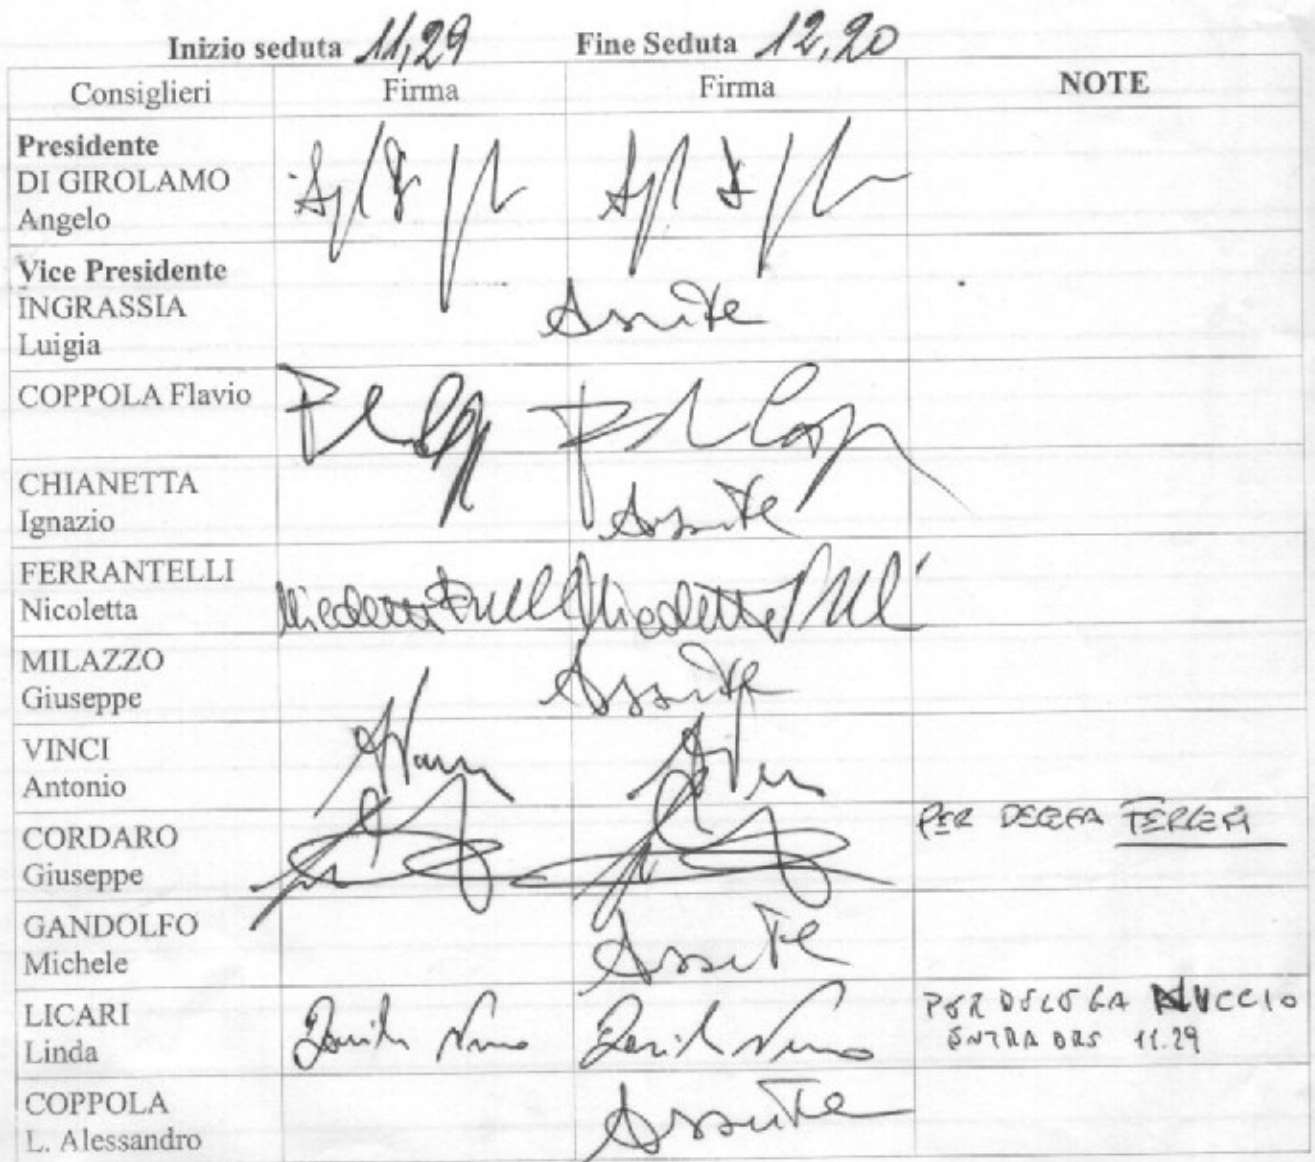 Inizio seduta 11,29 Fine Seduta 12,20
Consiglieri Firma Firma NOTE
Presidente
DI GIROLAMO
Angelo
Vice Presidente
INGRASSIA
Luigia
Assente
COPPOLA Flavio
CHIANETTA
Ignazio
Assente
FERRANTELLI
Nicoletta
Nicoletta Nicoletta
MILAZZO
Giuseppe
Assente
VINCI
Antonio
CORDARO
Giuseppe
PER DELEGA FERRERI
GANDOLFO
Michele
Assente
LICARI
Linda
PER DELEGA NUCCIO
ENTRA ORE 11.29
COPPOLA
L. Alessandro
Assente